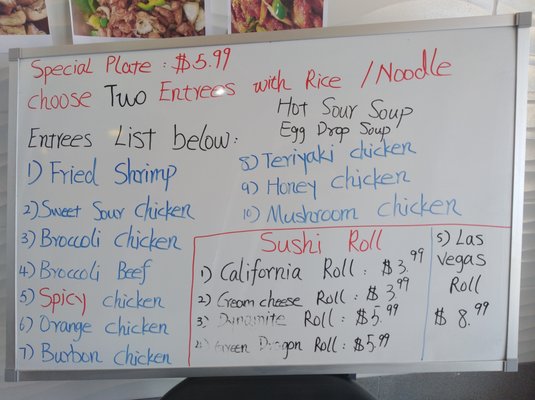 Special Plate : $5.99
choose Two Entrees with Rice / Noodle
Hot Sour Soup
Egg Drop Soup
Entrees List below:
1) Fried Shrimp
2) Sweet Sour Chicken
3) Broccoli Chicken
4) Broccoli Beef
5) Spicy chicken
6) Orange chicken
7) Burbon chicken
8) Teriyaki chicken
9) Honey chicken
10) Mushroom chicken
Sushi Roll
1) California Roll : $3.99
2) Cream cheese Roll : $3.99
3) Dynamite Roll : $5.99
4) Green Dragon Roll : $5.99
5) Las
Vegas
Roll
$8.99